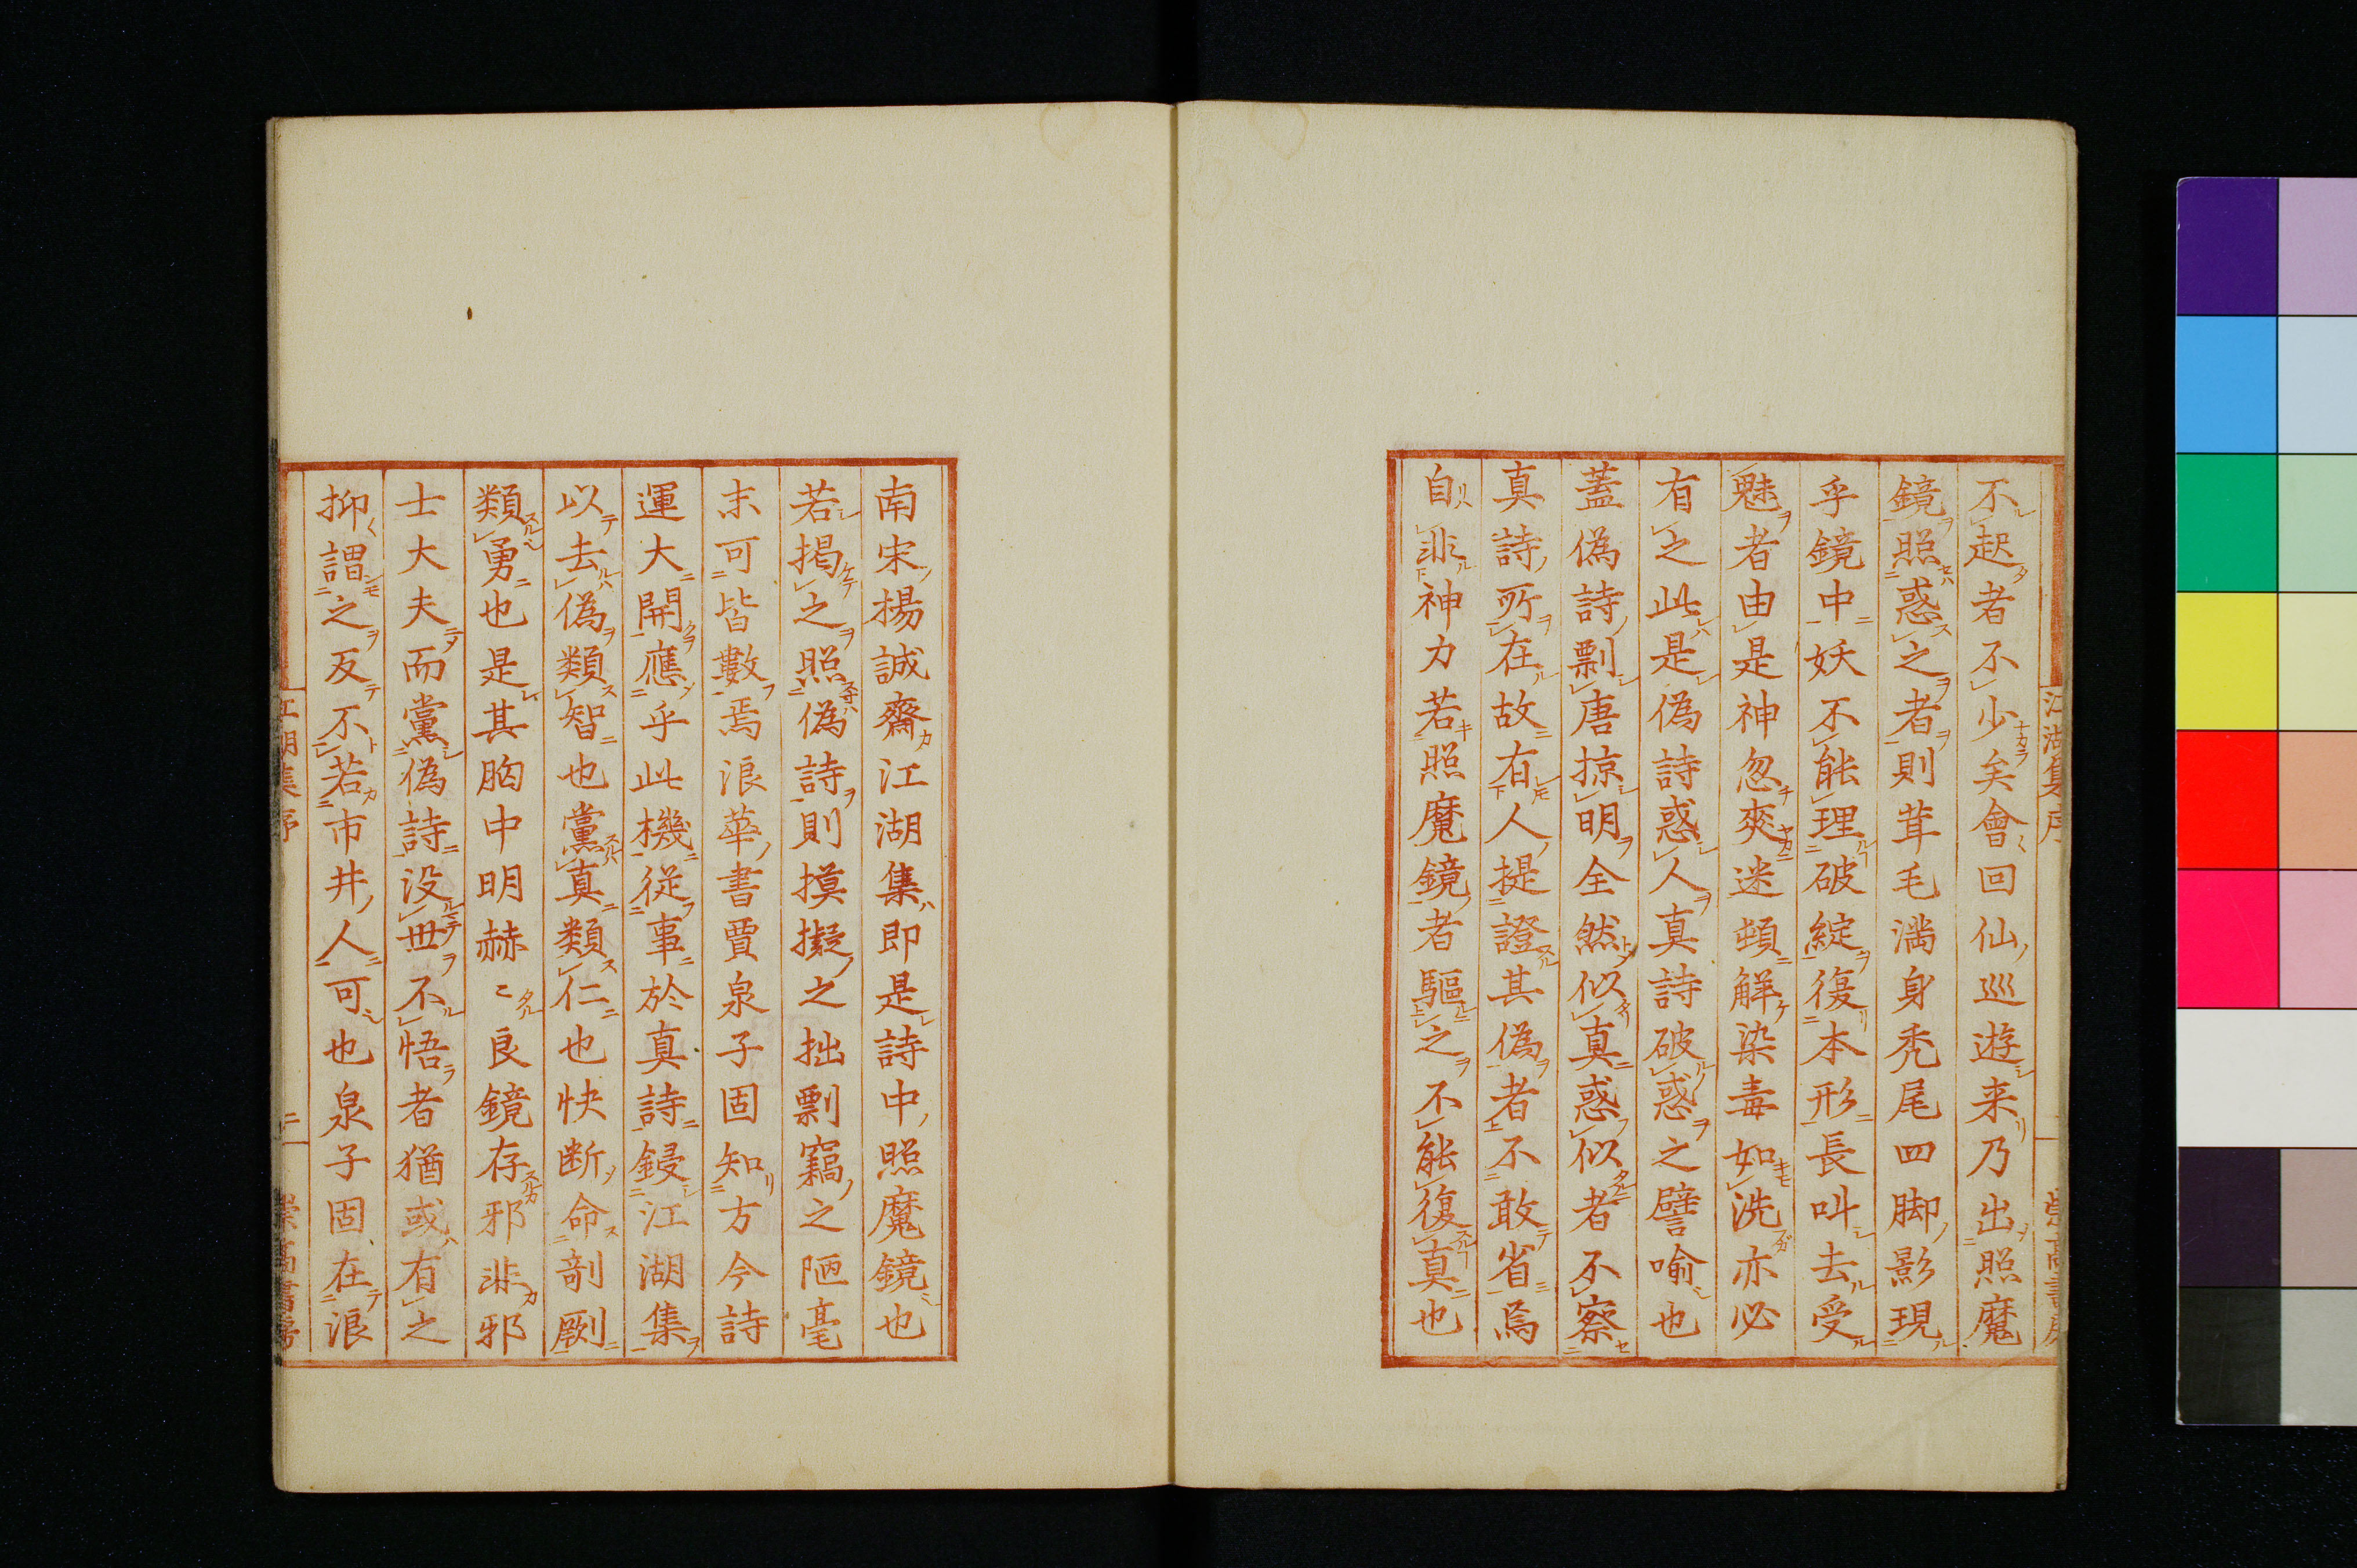 不起者不少矣會回仙巡遊来乃出照魔
鏡照惑之者則茸毛満身禿尾四脚影現
乎鏡中妖不能理破綻復本形長叫去受
魅者由是神忽爽迷頓解染毒如洗亦必
有之此是偽詩惑人真詩破惑之譬喻也
蓋偽詩剽唐掠明全然似真惑似者不察
真詩所在故有人提證其偽者不敢省焉
自非神力若照魔鏡者驅之不能復真也
南宋揚誠齋江湖集即是詩中照魔鏡也
若掲之照偽詩則摸擬之拙剽竊之陋毫
末可皆數焉浪華書賈泉子固知方今詩
運大開應乎此機從事於真詩鋟江湖集
以去偽類智也黨真類仁也快断命剞劂
類勇也是其胸中明赫〻良鏡存邪非邪
士大夫而黨偽詩没世不悟者猶或有之
抑謂之反不若市井人可也泉子固在浪
江湖集序
二